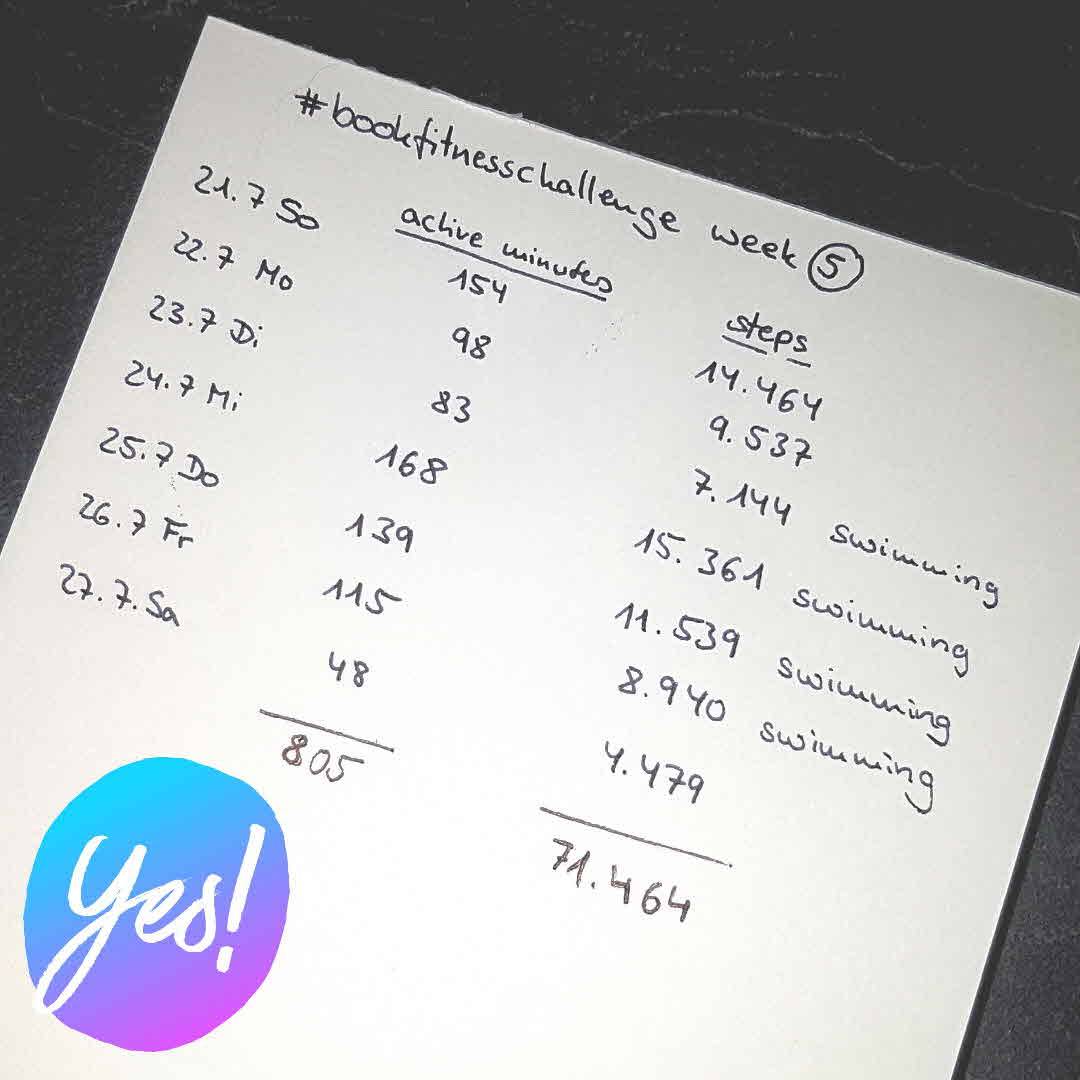 #bookfitnesschallenge week 5
active minutes steps
21.7 So 154 14.464
22.7 Mo 98 9.537
23.7 Di 83 7.144 swimming
24.7 Mi 168 15.361 swimming
25.7 Do 139 11.539 swimming
26.7 Fr 115 8.940 swimming
27.7. Sa 48 4.479
805 71.464
yes!